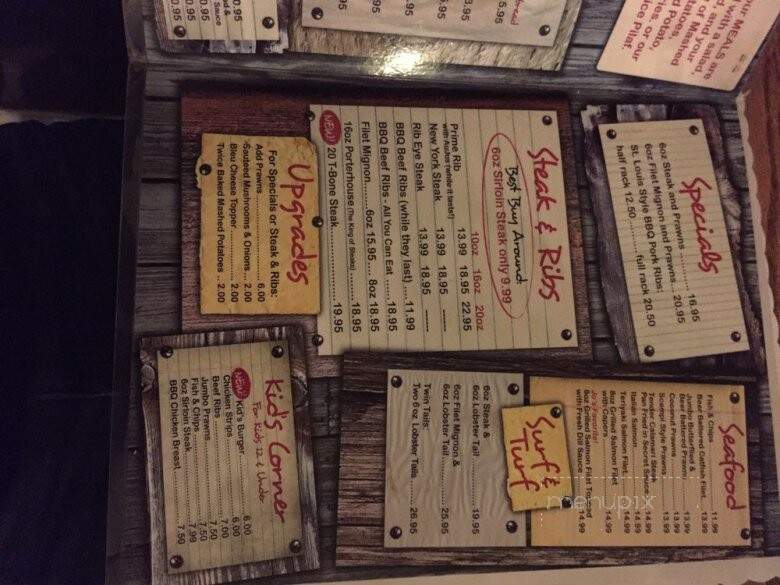 Specials
6oz Steak and Prawns ........... 16.95
6oz Filet Mignon and Prawns... 20.95
St. Louis Style BBQ Pork Ribs:
half rack 12.50 ........... full rack 20.50
Steak & Ribs
Best Buy Around
6oz Sirloin Steak only 9.99
10oz 16oz 20oz
Prime Rib 13.99 18.95 22.95
New York Steak 13.99 18.95 -----
Rib Eye Steak 13.99 18.95 -----
BBQ Beef Ribs (while they last) .... 11.99
BBQ Beef Ribs - All You Can Eat ...... 18.95
Filet Mignon........ 6oz 15.95 .... 8oz 18.95
16oz Porterhouse (The King of Steaks) ........ 18.95
NEW! 20 T-Bone Steak ........ 19.95
Upgrades
For Specials or Steak & Ribs:
Add Prawns ........ 6.00
Sauteed Mushrooms & Onions .. 2.00
Bleu Cheese Topper ........ 2.00
Twice Baked Mashed Potatoes .. 2.00
Seafood
Fish & Chips ........ 11.99
Beer Battered Catfish Filet ... 13.99
Jumbo Butterflied &
Beer Battered Prawns ........ 13.99
Coconut Prawns ........ 13.99
Scampi Style Prawns ........ 13.99
Tender Calamari Steak
Pan Fried in Secret Sauce ... 14.99
Italian Salmon ........ 14.99
Teriyaki Salmon Filet ........ 14.99
8oz Grilled Salmon Filet
with Capers ........ 14.99
8oz Grilled Salmon Filet Topped
with Fresh Dill Sauce ........ 14.99
Surf &
Turf
6oz Steak &
6oz Lobster Tail ........ 19.95
6oz Filet Mignon &
6oz Lobster Tail ........ 25.95
Twin Tails:
Two 6 oz Lobster Tails ..... 26.95
Kid's Corner
For Kids 12 & Under
NEW! Kid's Burger ........ 6.00
Chicken Strips ........ 6.00
Beef Ribs ........ 7.00
Jumbo Prawns ........ 7.50
Fish & Chips ........ 7.50
6oz Sirloin Steak ........ 7.99
BBQ Chicken Breast ........ 7.50
menupix